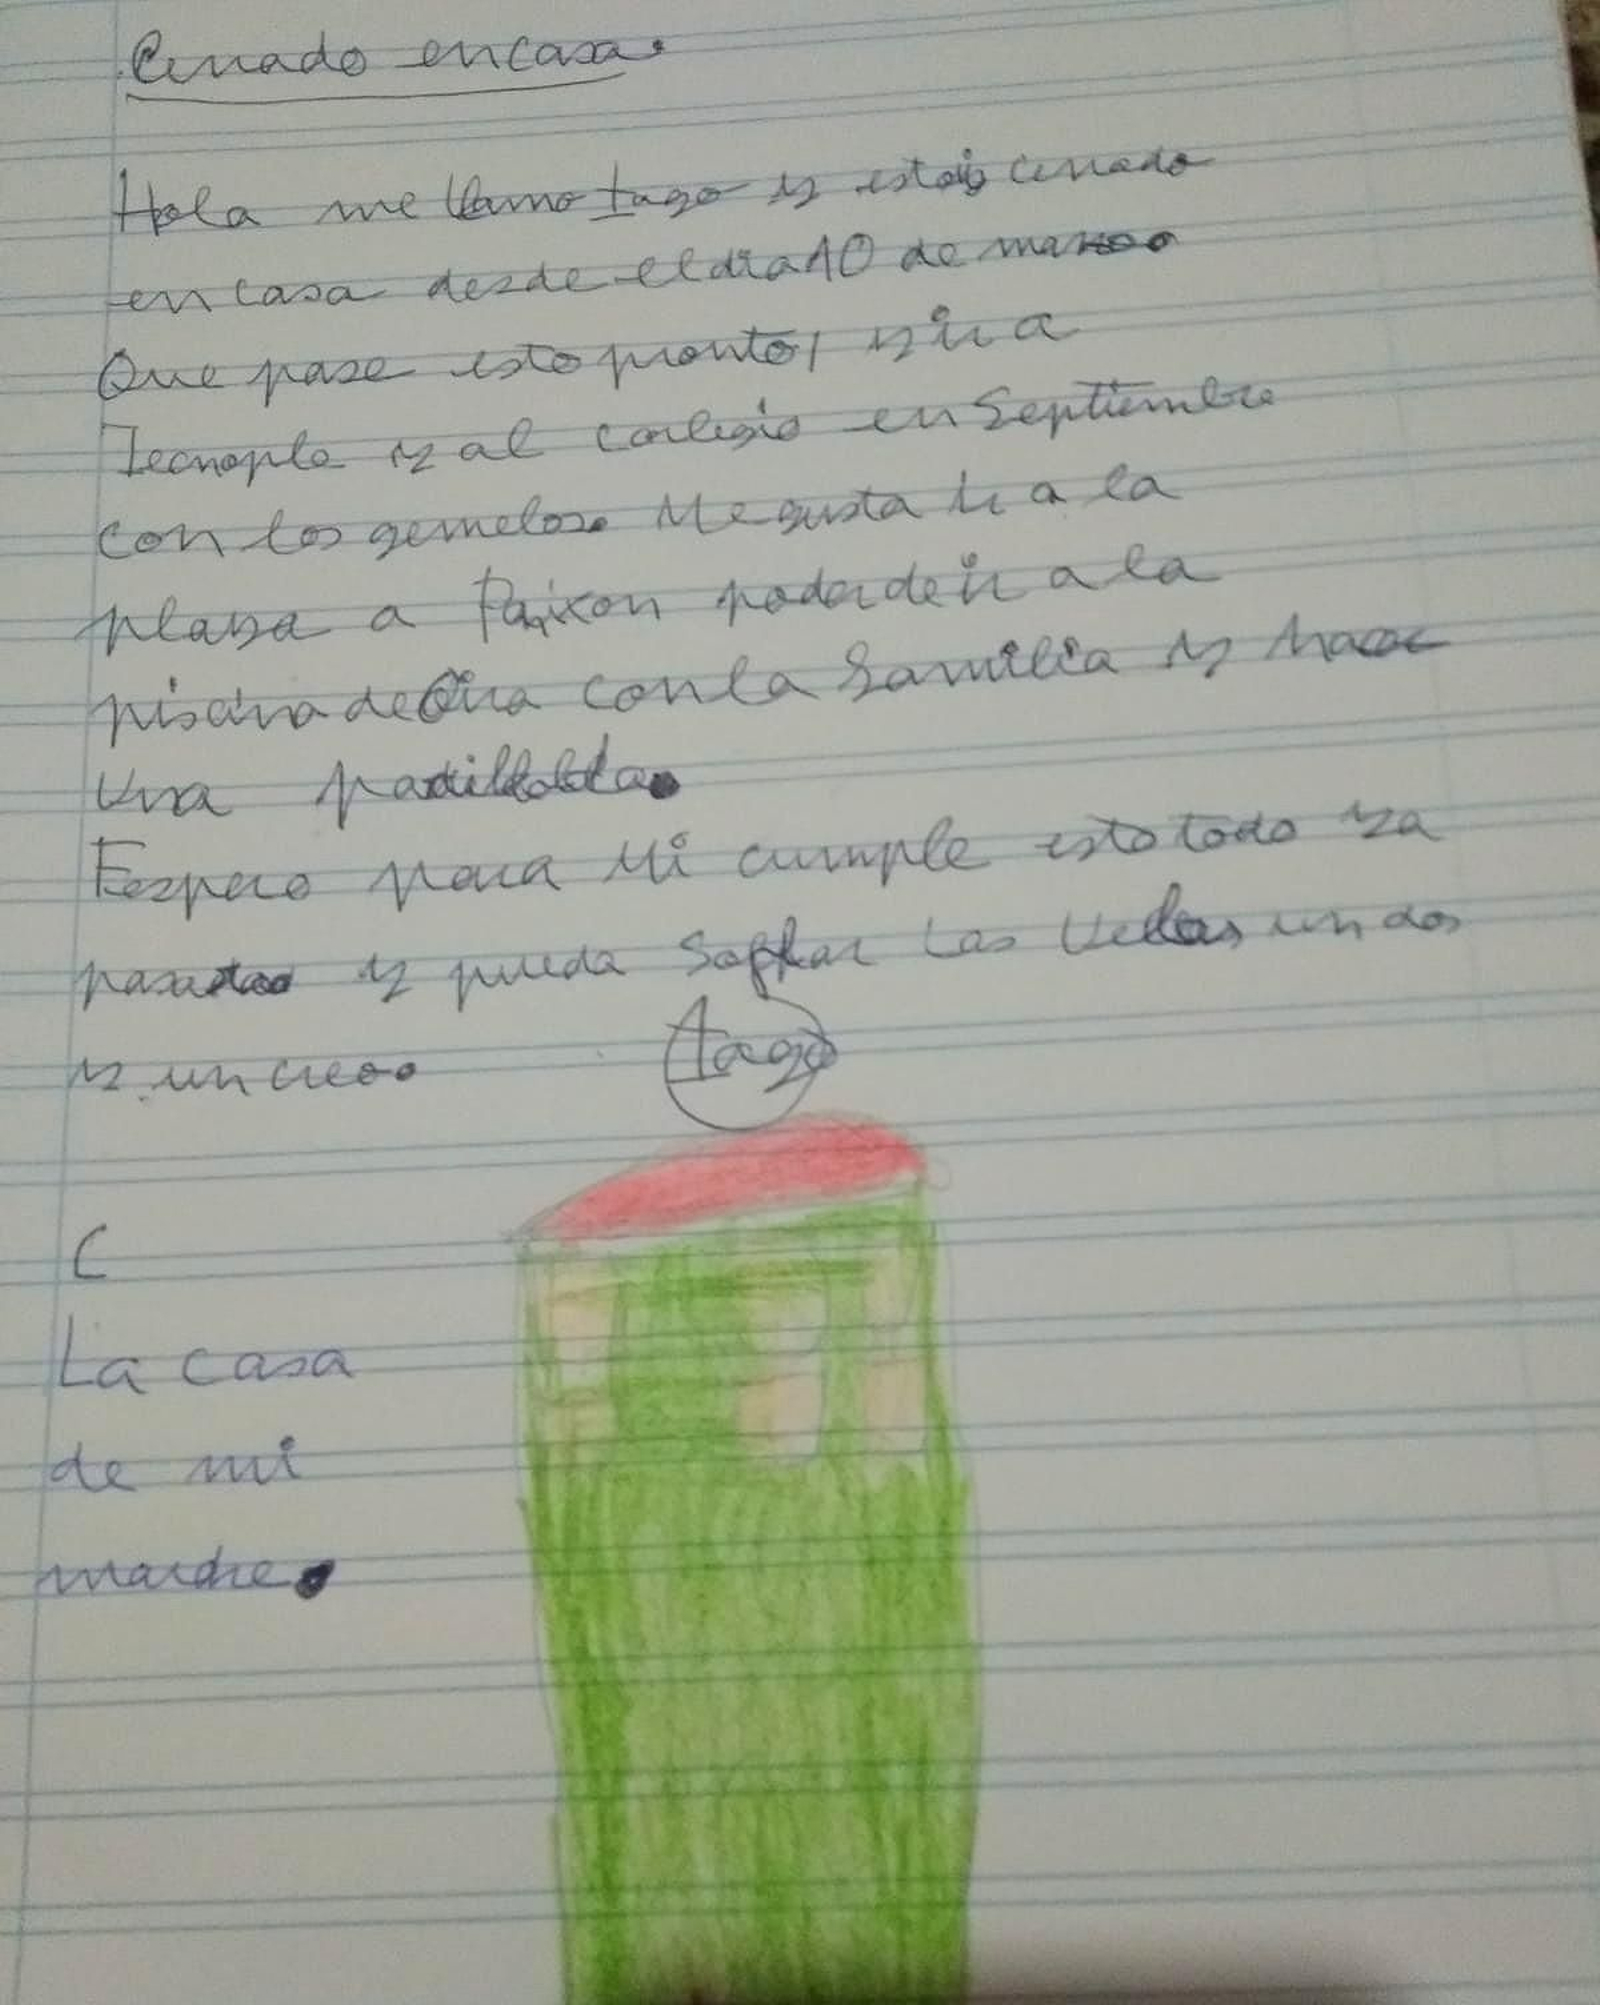 Cerrado en casa.
Hola me llamo Iago y estoy cerrado
en casa desde el dia 10 de marzo
Que pase esto pronto, y ir a
Tecnople y al corlegio en Septiembre
con los gemelos. Me gusta ir a la
playa a Paixon poder de ir a la
piscina de Oira con la familia y hacer
una
Eespero para Mi cumple esto todo ya
pasado y pueda Soplar las velas un dos
y un creo.
Iago
C
La casa
de mi
mardre.